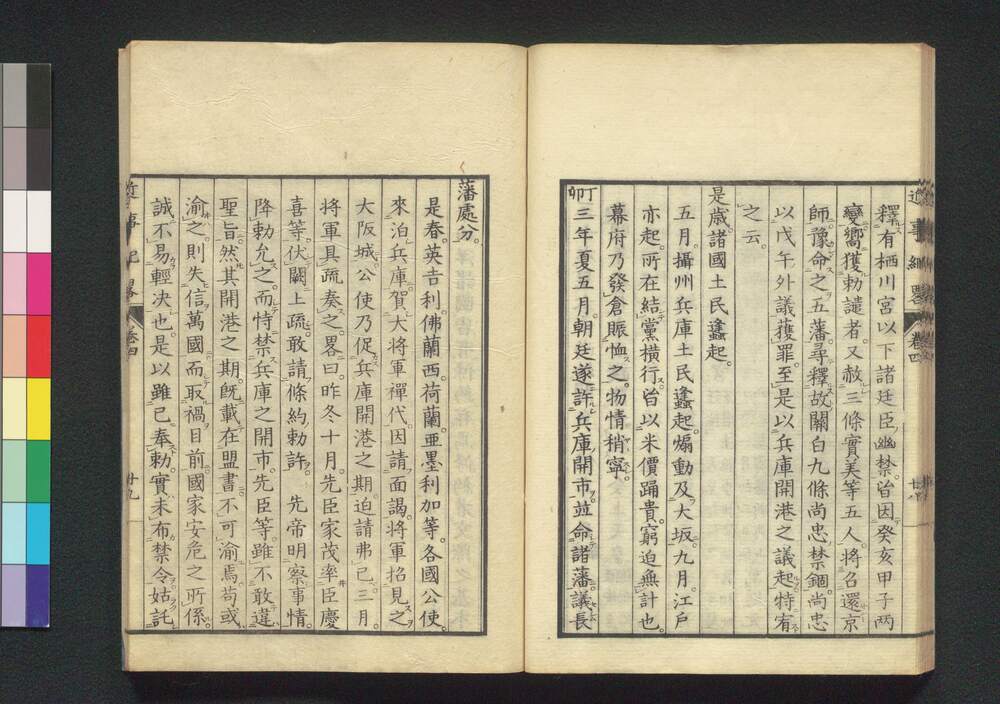 釋有栖川宮以下諸廷臣幽禁皆因癸亥甲子两
變嚮獲勅譴者又赦三條實美等五人將召還京
師豫命之五藩尋釋故關白九條尚忠禁錮尚忠
以戊午外議獲罪至是以兵庫開港之議起特宥
之云
是歳諸國土民蠭起
五月攝州兵庫土民蠭起煽動及大坂九月江戸
亦起所在結黨橫行皆以米價踊貴窮迫無計也
幕府乃發倉賑恤之物情稍寧
丁卯三年夏五月朝廷遂許兵庫開市並命諸藩議長
藩處分
是春英吉利佛蘭西荷蘭亜墨利加等各國公使
來泊兵庫賀大將軍禪代因請面謁將軍招見之
大阪城公使乃促兵庫開港之期迫請弗已三月
將軍具疏奏之畧曰昨冬十月先臣家茂率臣慶
喜等伏闕上疏敢請條約勅許 先帝明察事情
降勅允之而特禁兵庫之開市先臣等雖不敢違
聖旨然其開港之期既載在盟書不可渝焉苟或
渝之則失信萬國而取禍目前國家安危之所係
誠不易輕決也是以雖已奉勅實未布禁令姑託
近事紀畧 卷四 廿九